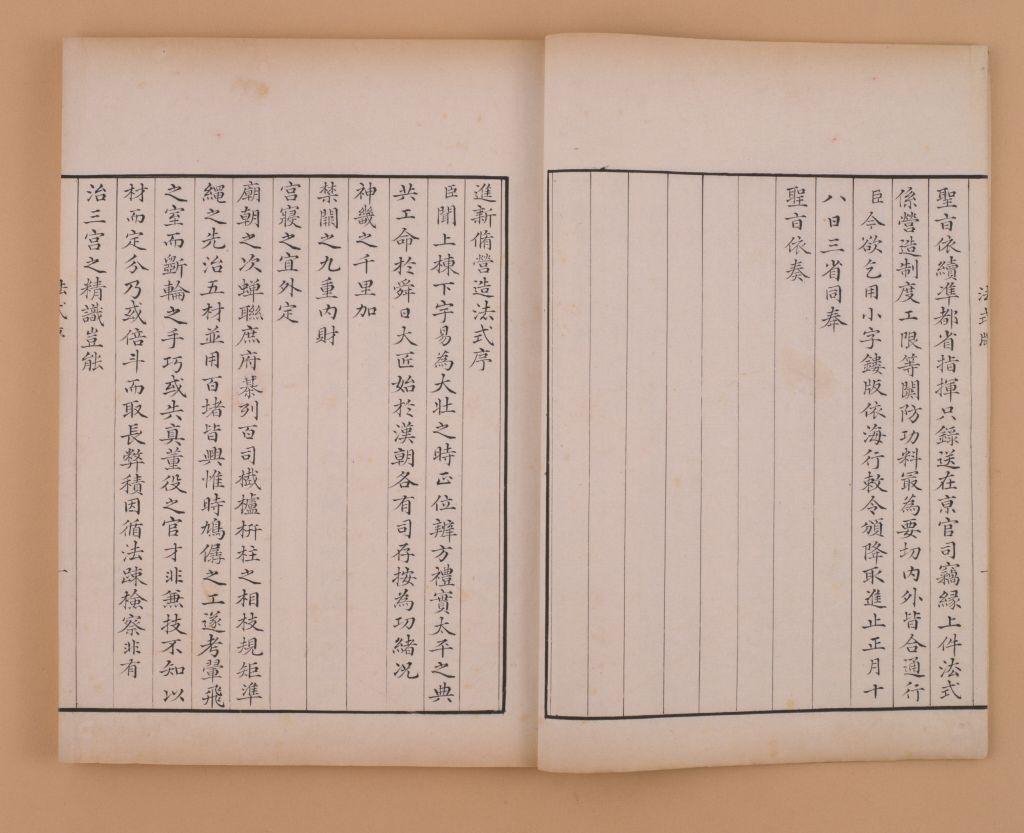 聖旨依續準都省指揮只錄送在京官司竊縁上件法式
係營造制度工限等關防功料最為要切內外皆合通行
臣今欲乞用小字鏤版依海行敕令頒降取進止正月十
八日三省同奉
聖旨依奏
進新脩營造法式序
臣聞上棟下宇易為大壯之時正位辨方禮實太平之典
共工命於舜日大匠始於漢朝各有司存按為功緒况
神畿之千里加
禁闕之九重內財
宫寢之宜外定
廟朝之次蟬聮庶府棊列百司櫼櫨枅柱之相枝規矩準
繩之先治五材並用百堵皆興惟時鳩僝之工遂考翬飛
之室而斵輪之手巧或失真董役之官才非兼技不知以
材而定分乃或倍斗而取長弊積因循法疎檢察非有
治三宫之精識豈能